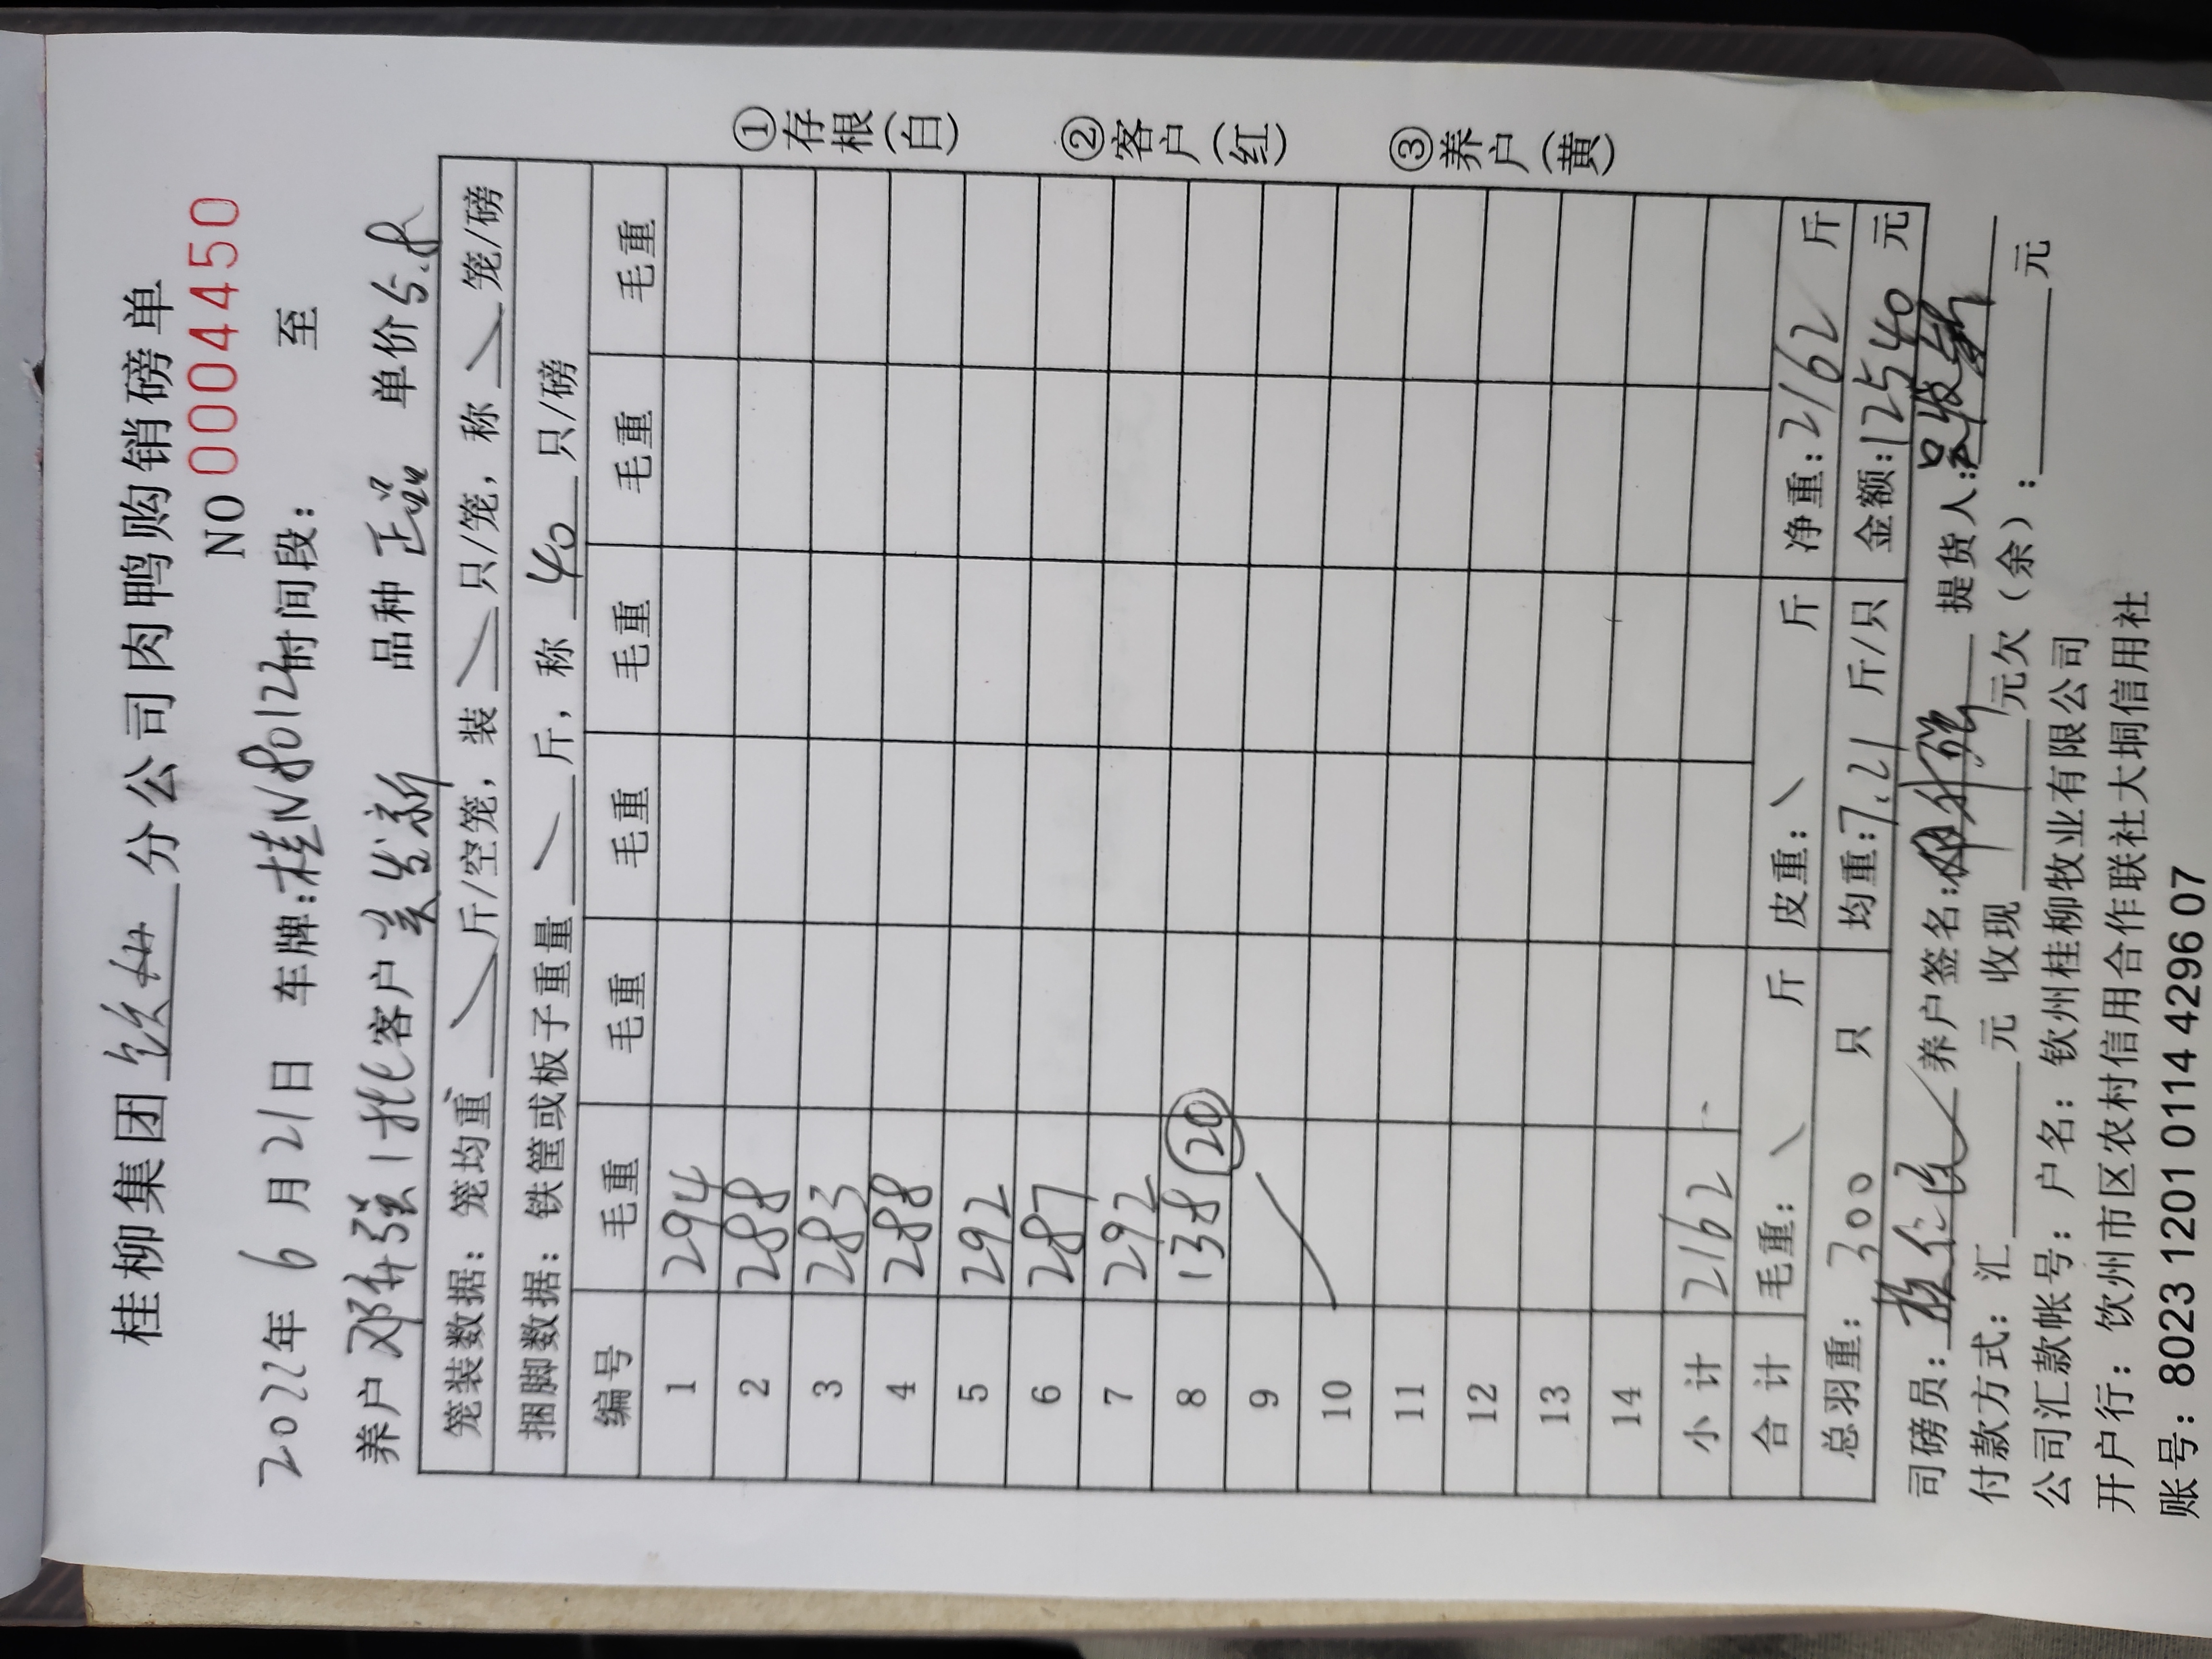 桂柳集团 钦州 分公司肉鸭购销磅单
NO 0004450
2022年 6 月 21 日 车牌:桂N8012 时间段: 至
养户 邓弃强 1批 客户 吴发新 品种 正品 单价 5.8
笼装数据: 笼均重 斤/空笼, 装 只/笼, 称 笼/磅
捆脚数据: 铁筐或板子重量 斤, 称 40 只/磅
编号 毛重 毛重 毛重 毛重 毛重 毛重
1 294
2 288
3 283
4 288
5 292
6 287
7 292
8 138 (20)
9
10
11
12
13
14
小计 2162
合计 毛重: 斤 皮重: 斤 净重: 2162 斤
总羽重: 300 只 均重: 7.21 斤/只 金额: 12540 元
司磅员: 养户签名: 提货人:
付款方式: 汇 元 收现 元欠(余): 元
公司汇款帐号: 户名: 钦州桂柳牧业有限公司
开户行: 钦州市区农村信用合作联社大垌信用社
账号: 8023 1201 0114 4296 07
①存根(白)
②客户(红)
③养户(黄)